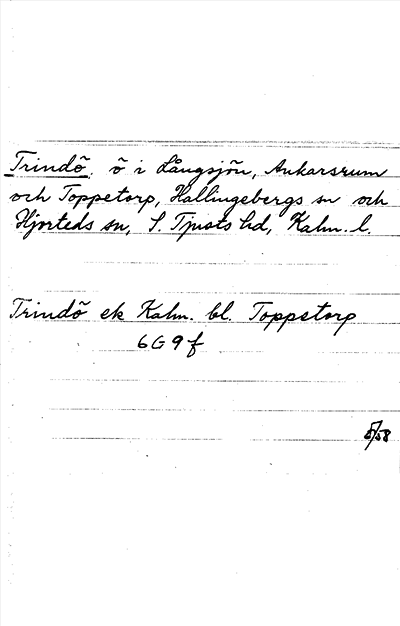 Trindö, ö i Långsjön, Ankarsrum
och Toppetorp, Hallingebergs sn och
Hjorteds sn, S. Tjusts hd, Kalm. l.
Trindö ek Kalm. bl. Toppetorp
6G9f
5/58